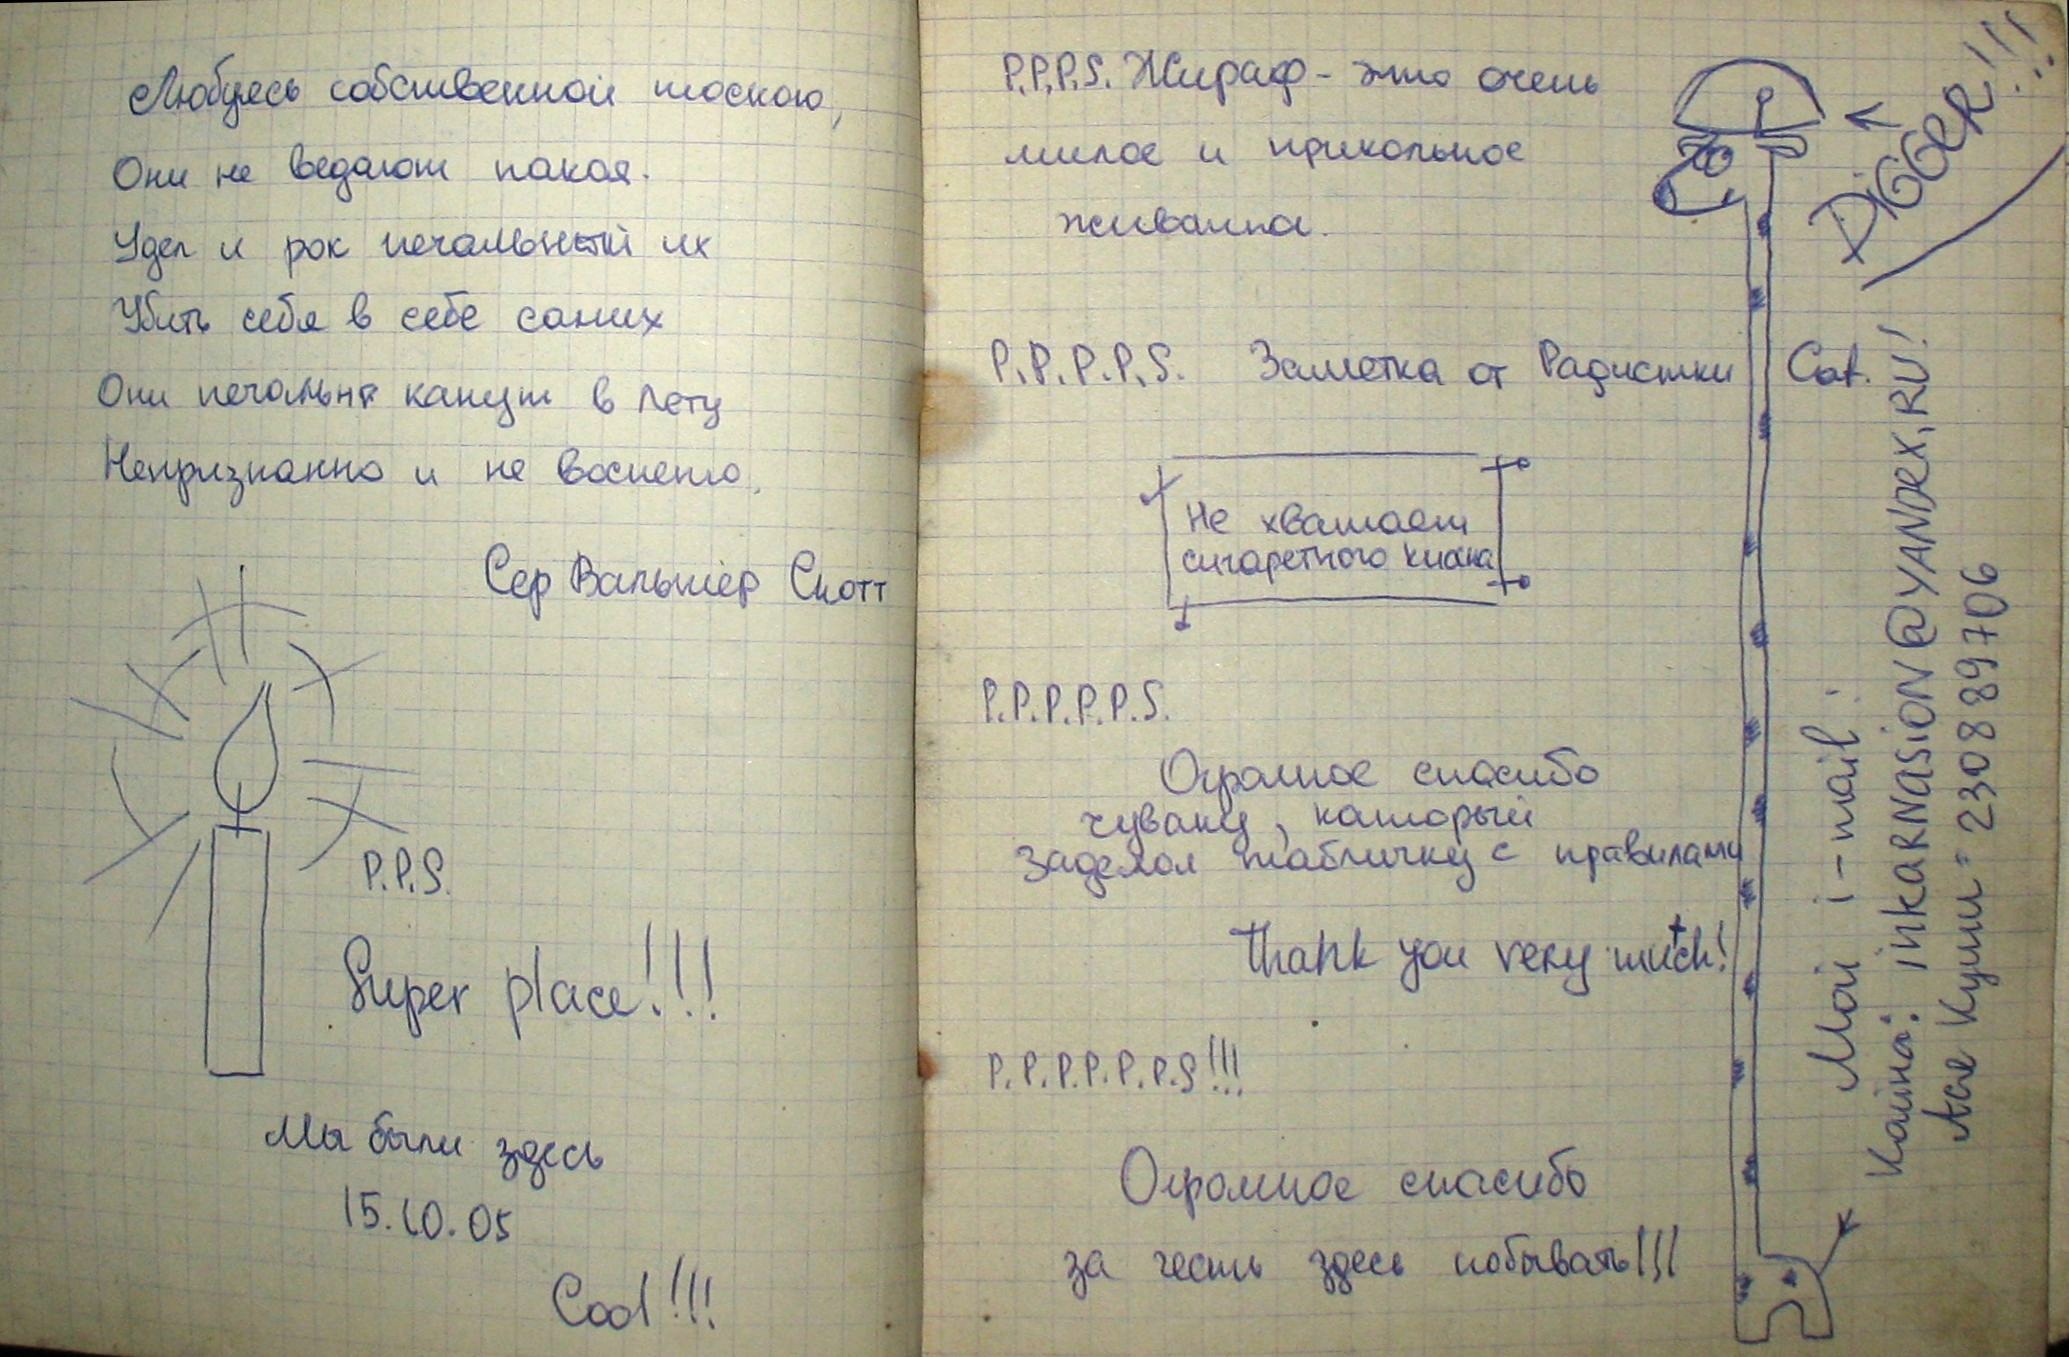 Любуясь собственной тоскою,
Они не ведают покоя.
Удел и рок печальный их
Убить себя в себе самих
Они печально канут в Лету
Непризнанно и не воспето.
Сер Вальтер Скотт
P.P.S.
Super place!!!
Мы были здесь
15.10.05
Cool!!!
P.P.P.S. Жираф - это очень
милое и прикольное
живатна.
P.P.P.P.S. Заметка от Радистки Cat.
Не хватает
сигаретного киоска
P.P.P.P.P.S.
Огромное спасибо
чуваку, каторый
заделал табличку с правилами
Thank you very mutch!
P.P.P.P.P.P.S!!!
Огромное спасибо
за честь здесь побывать!!!
DiGGER!!!
Мой i-mail:
Каина: inkaRNasioN@YANDEX.RU!
Ася Куми = 230889706